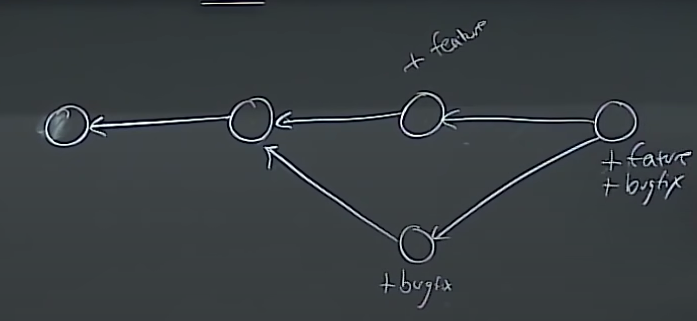 + feature
+ feature
+ bugfix
+ bugfix